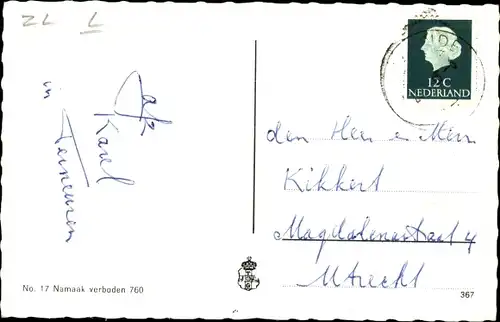 ZL L
12 C
NEDERLAND
afz
Karel
in Terneuzen
den Heer en Mevr
Kikkert
Magdalenastraat 4
Utrecht
No. 17 Namaak verboden 760
367